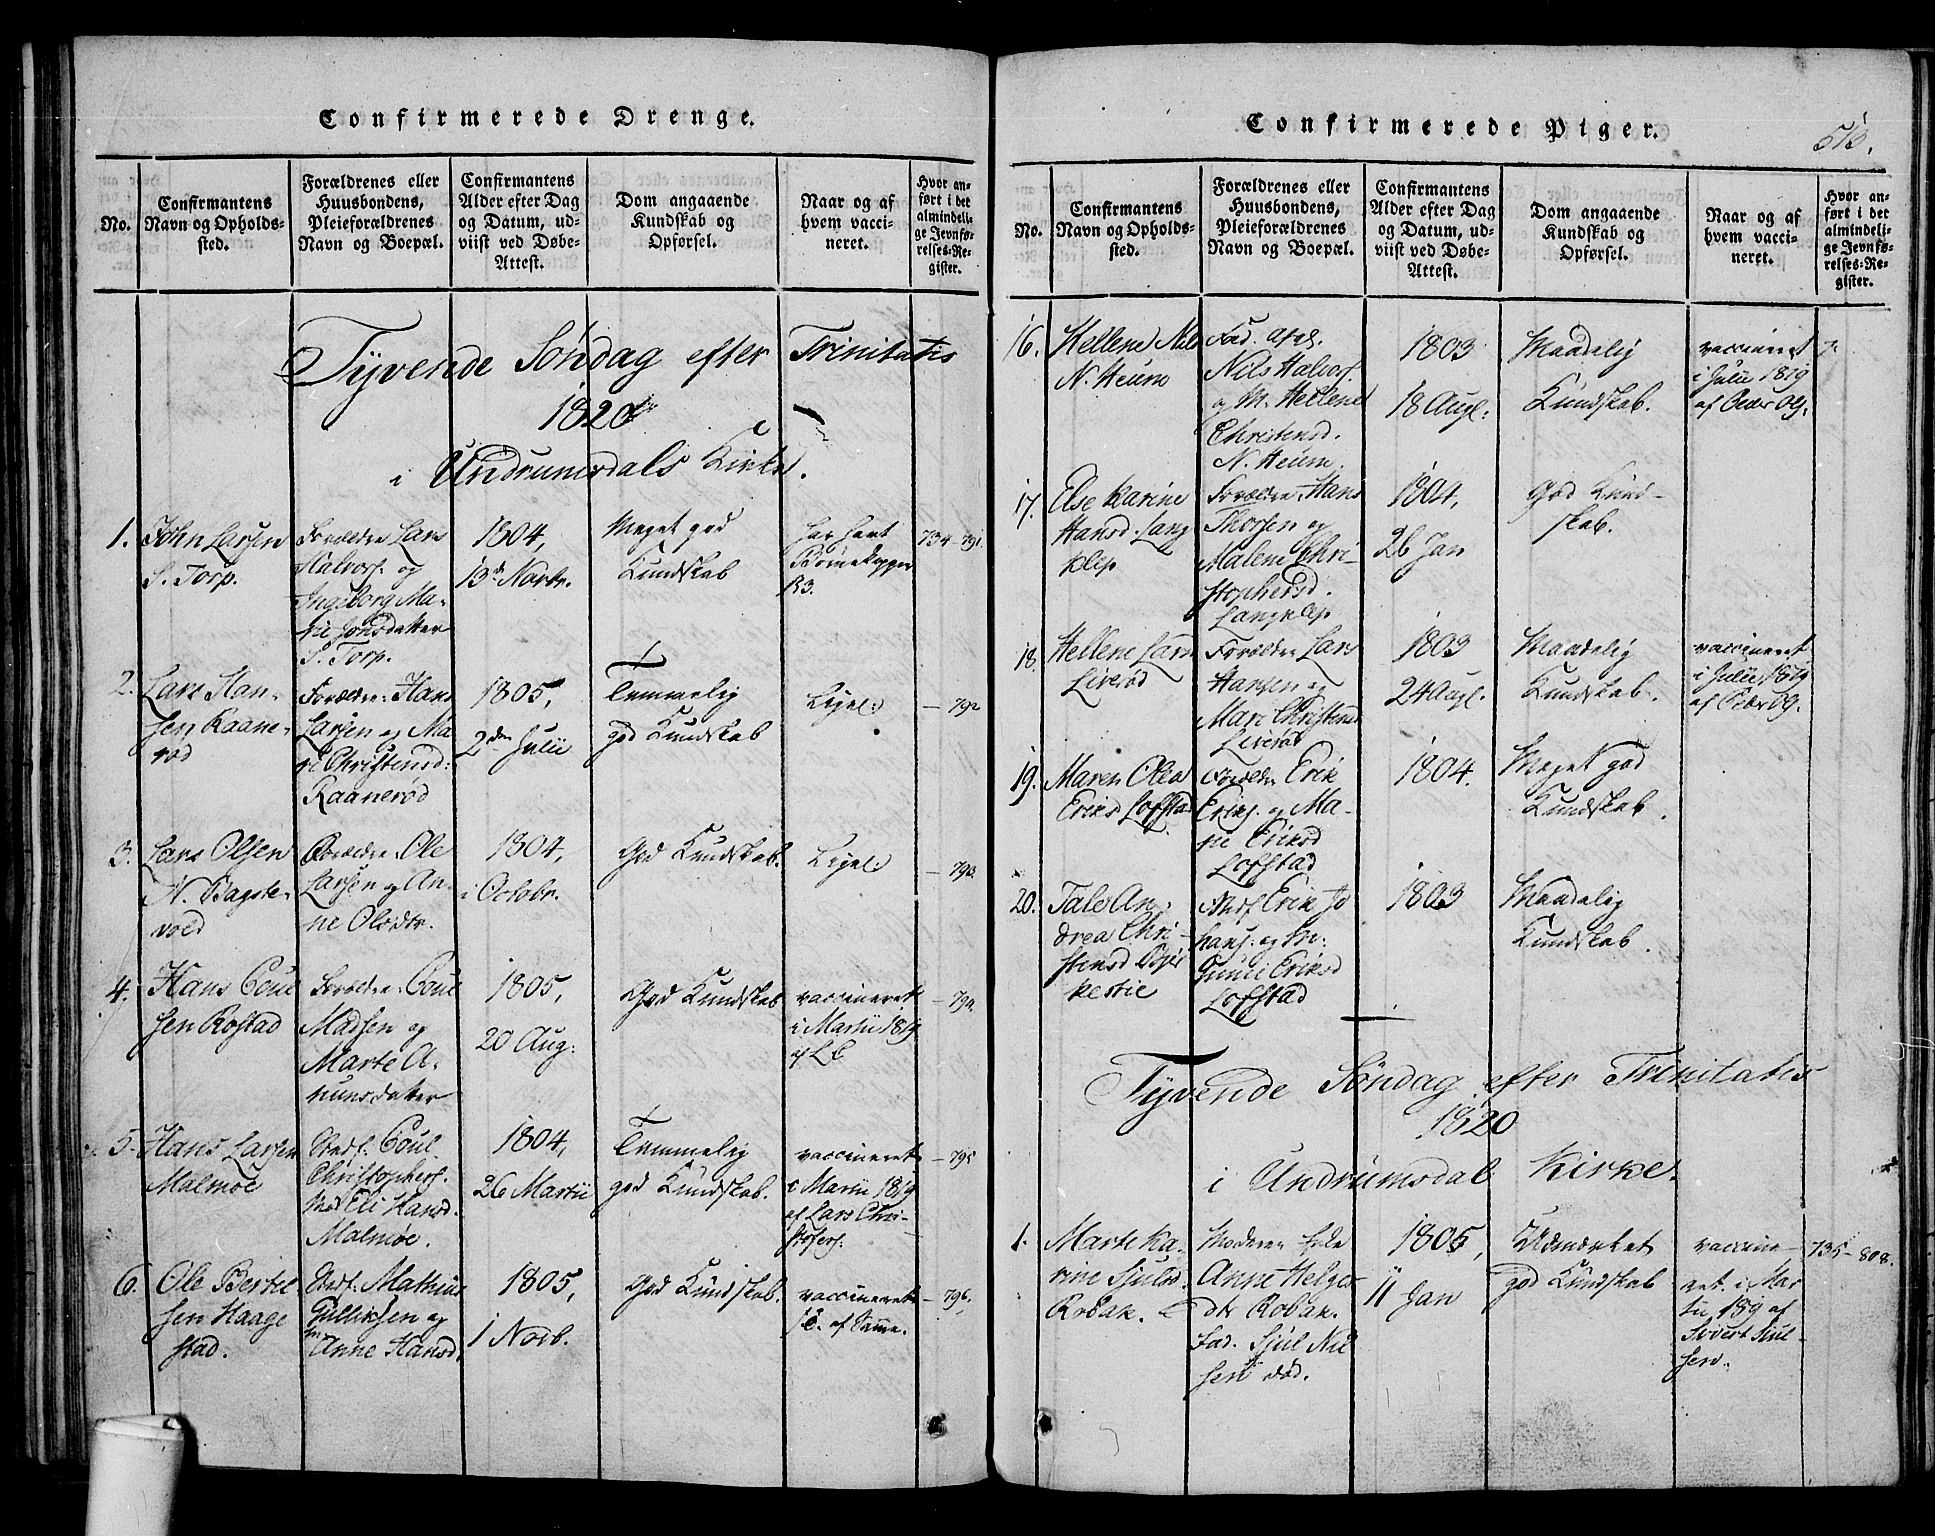 Confirmerede Drenge.
No.
Confirmantens
Navn og Opholds-
sted.
Forældrenes eller
Huusbondens,
Pleieforældrenes
Navn og Boepæl.
Confirmantens
Alder efter Dag
og Datum, ud-
viist ved Døbe-
Attest.
Dom angaaende
Kundskab og
Opførsel.
Naar og af
hvem vacci-
neret.
Hvor an-
ført i det
almindeli-
ge Jevnfø-
relses-Re-
gister.
Tyvende Søndag efter Trinitatis
1820
i Undrumsdals Kirke.
1.
John Larsen
S. Torp.
Forældre Lars
Halvors. og
Ingeborg Ma-
rie Jonsdatter
S. Torp.
1804,
13de Novbr.
Meget god
Kundskab
har havt
Børnekopper
734-791.
2.
Lars Han-
sen Raane-
rød
Forældre: Hans
Larsen og Ma
ri Christensd:
Raanerød
1805,
2den Julii
Temmelig
god Kundskab
Ligel:
- 792
3.
Lars Olsen
N. Bagste-
vold
Forældre: Ole
Larsen og An-
ne Olsdtr.
1804,
i Octobr.
God Kundskab.
Ligel:
- 793.
4.
Hans Poul
sen Rostad
Forældre: Poul
Madsen og
Marte A-
nunsdatter
1805,
20 Aug:
God Kundskab
vaccineret
i Martii 1819
- 794.
5.
Hans Larsen
Malmøe
Christophers.
Eli Hansd.
Malmøe.
1804,
26 Martii
Temmelig
god Kundskab.
vaccineret
i Martii 1819
af Lars Chri-
stofers.
- 795
6.
Ole Bertel
sen Haage
stad.
Mathias
Gulliksen og
Anne Hansd.
1805,
1 Novb.
God Kundskab.
vaccineret
af Samme.
- 796.
Confirmerede Piger.
513.
No.
Confirmantens
Navn og Opholds-
sted.
Forældrenes eller
Huusbondens,
Pleieforældrenes
Navn og Boepæl.
Confirmantens
Alder efter Dag
og Datum, ud-
viist ved Døbe-
Attest.
Dom angaaende
Kundskab og
Opførsel.
Naar og af
hvem vacci-
neret.
Hvor an-
ført i det
almindeli-
ge Jevnfø-
relses-Re-
gister.
16.
Hellene Nils
N. Heum
Fad. afg.
Nils Halvors.
og M. Hellene
Christensd.
N. Heum.
1803
18 Augl:
Maadelig
Kundskab.
vaccineret
i Julii 1819
af Peder Og.
17.
Else Karine
Hansd. Lang
klep
Forældre Hans
Thorsen og
Malene Chri-
stophersd.
Langklep
1804,
26 Jan
God Kund-
skab.
18.
Hellene Lars
Liverød
Forældre Lars
Hansen og
Mari Christensd
Liverød
1803
24 Augl.
Maadelig
Kundskab.
vaccineret
i Julii 1819
af Peder Og.
19.
Maren Olea
Eriks Lofstad
Forældre Erik
Eriks. og Ma-
rie Eriksd
Lofstad
1804.
Meget god
Kundskab.
20.
Tale An-
drea Chri-
stensd
Erik Jo
hans. og
Gunil Eriksd
Lofstad
1803
Maadelig
Kundskab.
Tyvende Søndag efter Trinitatis
1820
i Undrumsdal Kirke.
1.
Marte Ka-
rine Sjulsd
Robak.
Moderen
Anne Helges
dtr Robak.
Fad. Sjul Nil
sen død.
1805,
11 Jan
Udmærket
god Kundskab
vaccine-
ret i Mar
tii 1819 af
Sivert Sjul-
sen.
735-808.